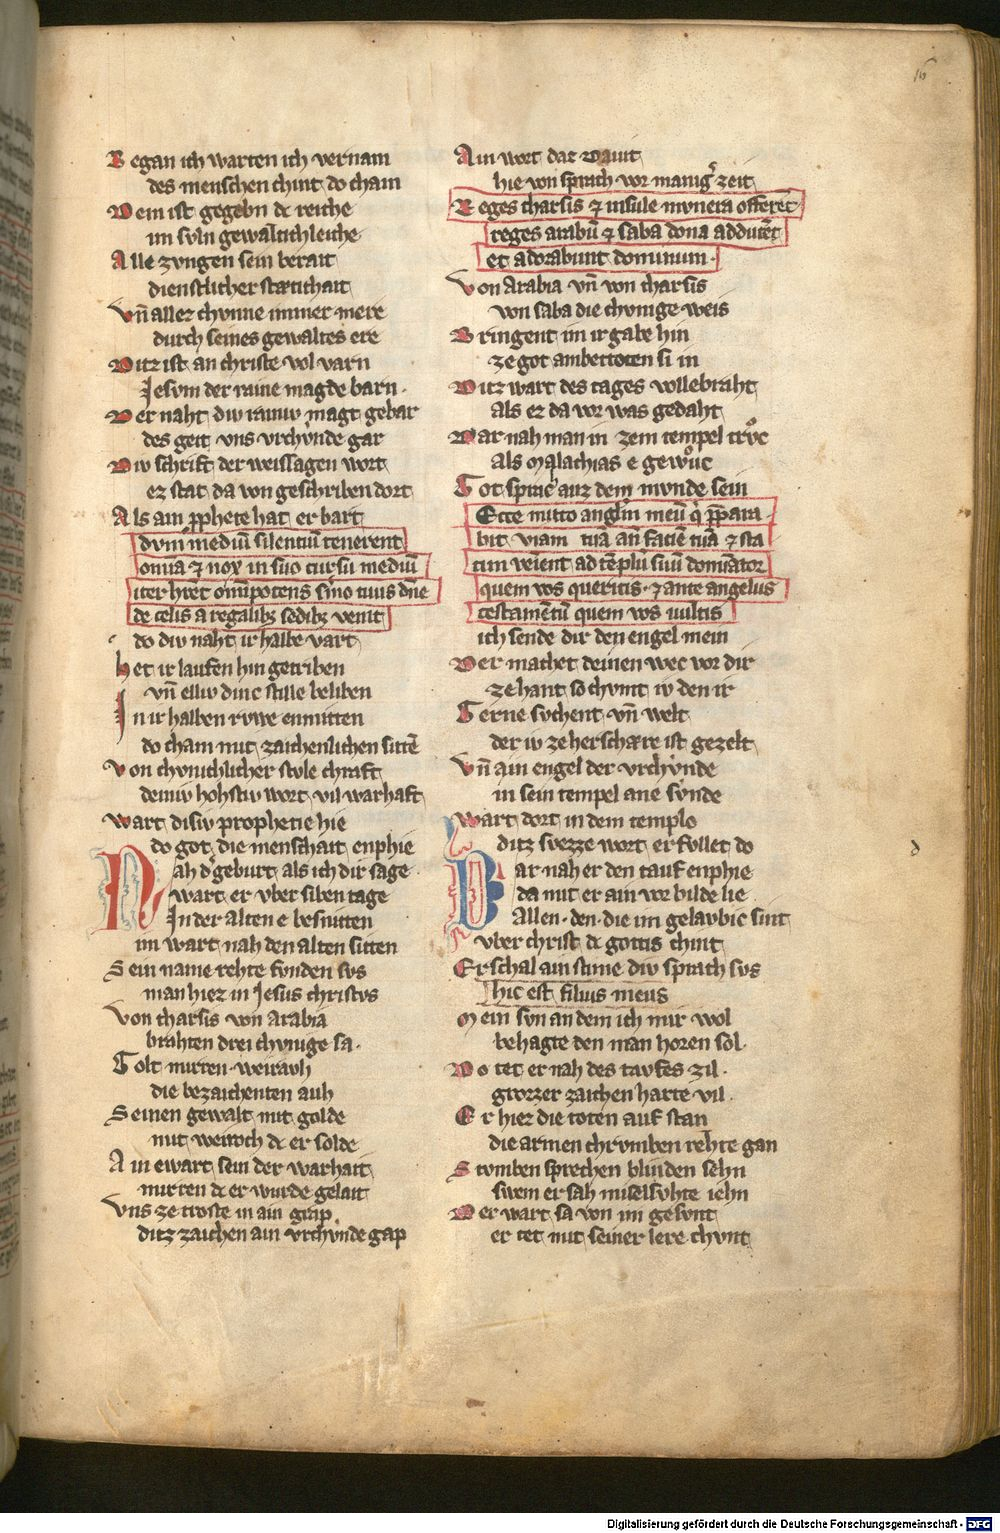 16
Began ich warten ich vernam
des menschen chint do cham
Dem ist gegebn dc reiche
im svln gewaltichleiche
Alle zvngen sein berait
dienstlicher stætichait
Vn̄ aller chvnne immer mere
durch seines gewaltes ere
Ditz ist an christe vol varn
Jesvm der raine magde barn.
Der naht div rainiv magt gebar
des geit vns vrchvnde gar
Div schrift der weissagen wort
ez stat da von geschriben dort
Als ain pphete hat er bart
dvm mediū silentiū tenerent
om̄ia ⁊ nox in suo cursu mediū
iter hrēt om̄ipotens s̄mo tuus dn̄e
de celis a regalibꝫ sedibꝫ venit
do div naht ir halbe vart
het ir laufen hin getriben
vn̄ elliv dinc stille beliben
In ir halben rvwe enmitten
do cham mit zaichenlichen sittē
Von chvnichlicher stvle chraft
deiniv hohstiv wort vil warhaft
Wart disiv prophetie hie
do got die menschait enphie
Nah d᾽ geburt als ich dir sage
wart er vber siben tage
In der alten e besnitten
im wart nah den alten sitten
Sein name rehte fvnden svs
man hiez in Jesus christvs
Von tharsis von Arabia
brahten drei chvnige sa.
Golt mirren. weiravh
die bezaichenten auh
Seinen gewalt mit golde
mit weiroch dc er solde
Ain ewart sein der warhait
mirren dc er wurde gelait
Vns ze troste in ain grap
ditz zaichen ain vrchvnde gap
Ain wort daz Dauit
hie von sprach vor manig᾽ zeit
Reges tharsis ⁊ insule mvnera offerēt
reges arabū ⁊ saba dona adducēt
et adorabunt dominum.
Von Arabia vn̄ von tharsis
von saba die chvnige weis
Bringent im ir gabe hin
ze got anbettoten si in
Ditz wart des tages vollebraht
als ez da vor was gedaht
Dar nah man in zem tempel trvͦc
als Malachias e gewvͦc
Got sprac᾽ auz dem mvnde sein
Ecce mitto angl̄m meū q̇ p̄para
bit viam tuā an̄ faciē tuā ⁊ sta
tim veīent ad tēplū suū domīator
quem vos queritis. ⁊ ante angelus
testamētū quem vos uultis
ich sende dir den engel mein
Der machet deinen wec vor dir
ze hant so chvmt iv den ir
Gerne svchent vn̄ welt
der iv ze herschære ist gezelt
Vn̄ ain engel der vrchvnde
in sein tempel ane svnde
Wart dort in dem templo
ditz svezze wort erfvllet do
Dar nah er den tauf enphie
da mit er ain vor bilde lie
Allen. den. die im gelavbic sint
vber christ dc gottis chint
Er schal ain stime div sprach svs
hic est filius meus
Mein svn an dem ich mir wol
behagte den man horen sol.
Do tet er nah des tavfes zil.
grozzer zaichen harte vil.
Er hiez die toten auf stan
die armen chrvmben rehte gan
Stvmben sprechen blinden sehn
swem er sah miselsvhte iehn
Der wart sa von im gesvnt
er tet mit seiner lere chvnt
d
Digitalisierung gefördert durch die Deutsche Forschungsgemeinschaft - DFG